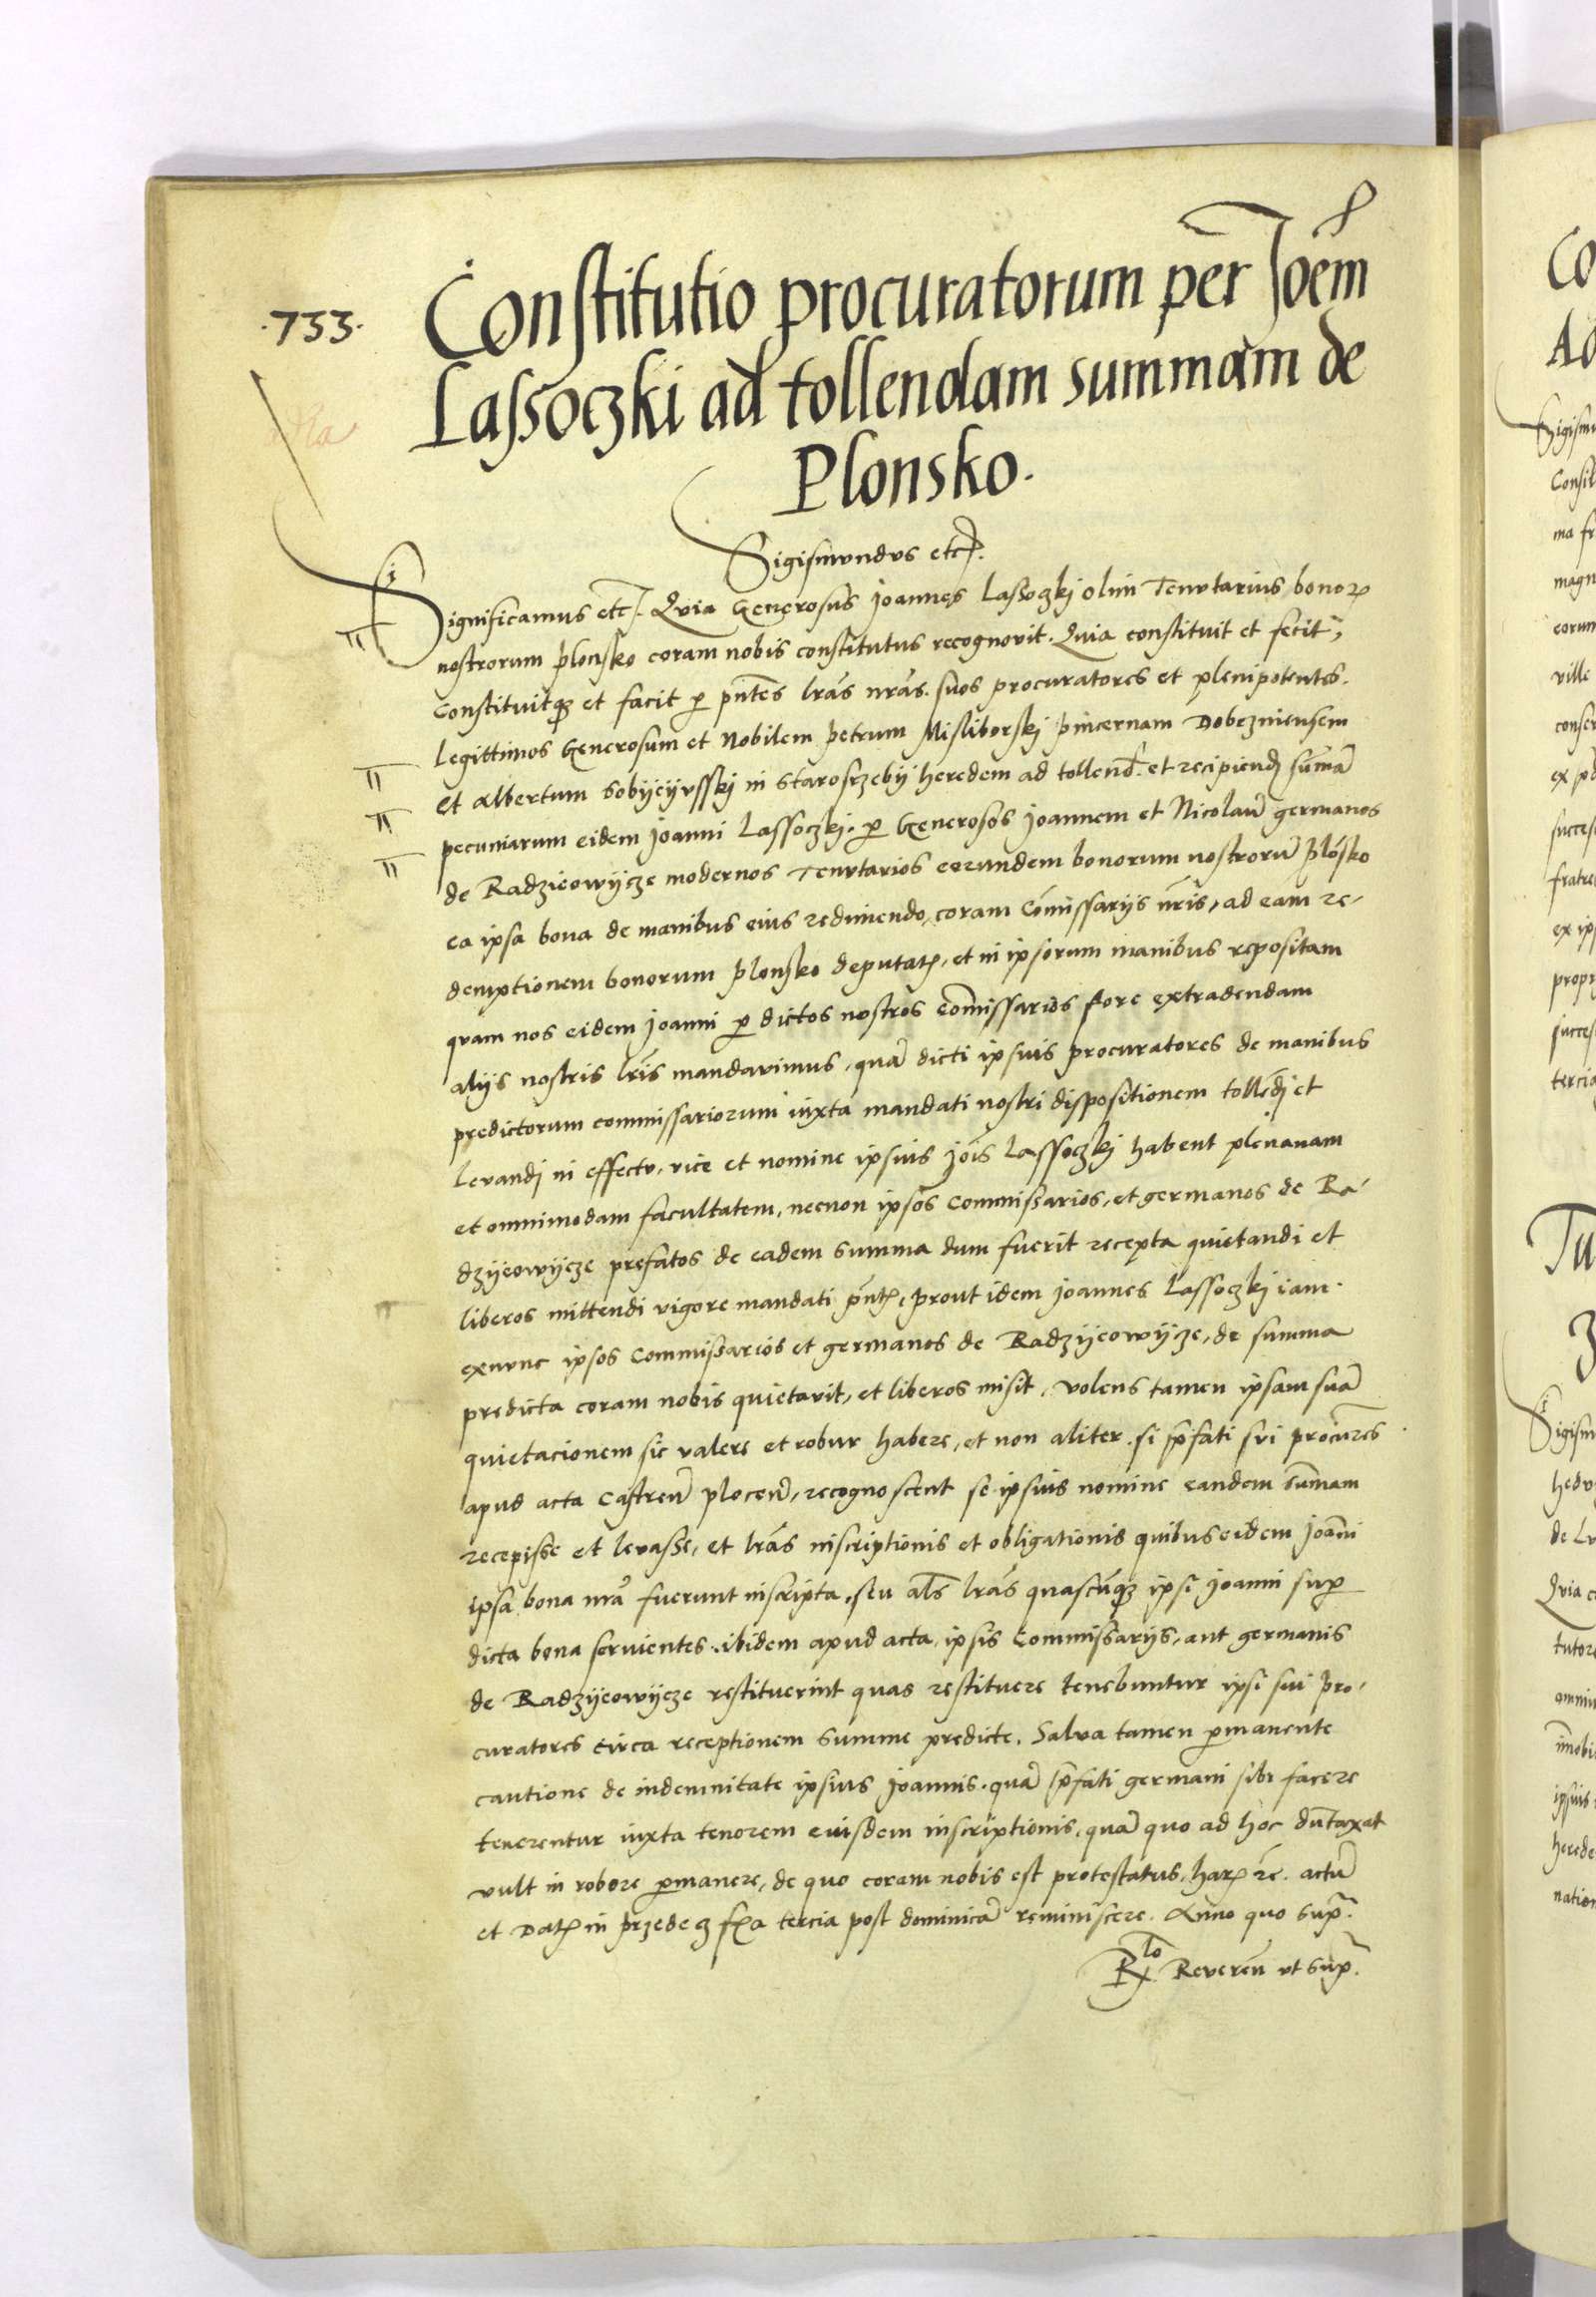 .733.
Constitutio procuratorum per Joem̄
Lassoczki ad tollendam summam de
Plonsko.
Sigismundus etc.
Significamus etc. Quia Generosus Joannes Lassoczkj olim Tenutarius bonoꝝ
nostrorum plonsko coram nobis constitutus recognovit. Quia constituit et fecit,
Constituitqꝫ et facit ꝑ pn̄tes lr̄as nr̄as. suos procuratores et plenipotentes.
legittimos Generosum et Nobilem petrum Misliborskj pincernam Dobrzniensem
et Albertum in Starosrzebij heredem ad tollend. et recipiend sum̄ā
pecuniarum eidem Joanni Lassoczkj. ꝑ Generosos Joannem et Nicolaū germanos
de Radzieowijcze modernos Tenutarios eorundem bonorum nostrorū plōsko
ea ipsa bona de manibus eius redimendo, coram Com̄issarijs nr̄is, ad eam re-
demptionem bonorum plonsko deputatꝭ, et in ipsorum manibus repositam
quam nos eidem Joanni ꝑ dictos nostros Com̄issarios fore extradendam
alijs nostris lr̄is mandavimus, quā dicti ipsius procuratores de manibus
predictorum commissariorum iuxta mandati nostri dispositionem tollēdj et
levandj in effectu, vice et nomine ipsius Jois̄ Lassoczkj habent plenariam
et omnimodam facultatem, necnon ipsos Commissarios, et germanos de Ra-
dzijeowijcze prefatos de eadem summa dum fuerit recepta quietandi et
liberos mittendi vigore mandati pn̄tꝭ, prout idem Joannes Lassoczkj iam.
exnunc ipsos Commissarios et germanos de Radzijeowijcze, de summa
predicta coram nobis quietavit, et liberos misit, volens tamen ipsam suā
quietacionem sic valere et robur habere, et non aliter. si p̄fati sui procur̄es
apud acta Castreñ plocen̄, recognoscent se ipsius nomine eandem sum̄am
recepisse et levasse, et lr̄as inscriptionis et obligationis quibus eidem Joan̄i
ipsa bona nr̄a fuerunt inscripta. seu al̄s lr̄as quascūqꝫ ipsi Joanni suꝑ
dicta bona servientes. ibidem apud acta ipsis Commissarijs, aut germanis
de Radzijeowijcze restituerint quas restituere tenebuntur ipsi sui pro-
curatores circa receptionem summe predicte. Salva tamen ꝑmanente
cautione de indemnitate ipsius Joannis. quā p̄fati germani sibi facere
tenerentur iuxta tenorem eiusdem inscriptionis, quā quo ad hoc dun̄taxat
vult in robore ꝑmanere, de quo coram nobis est protestatus, harꝝ re. actū
et Datꝭ in przedecz fr̄ia tercia post dominicā reminiscere. Anno quo supꝛ̄.
R̄lo Reveren̄ ut sup̄.